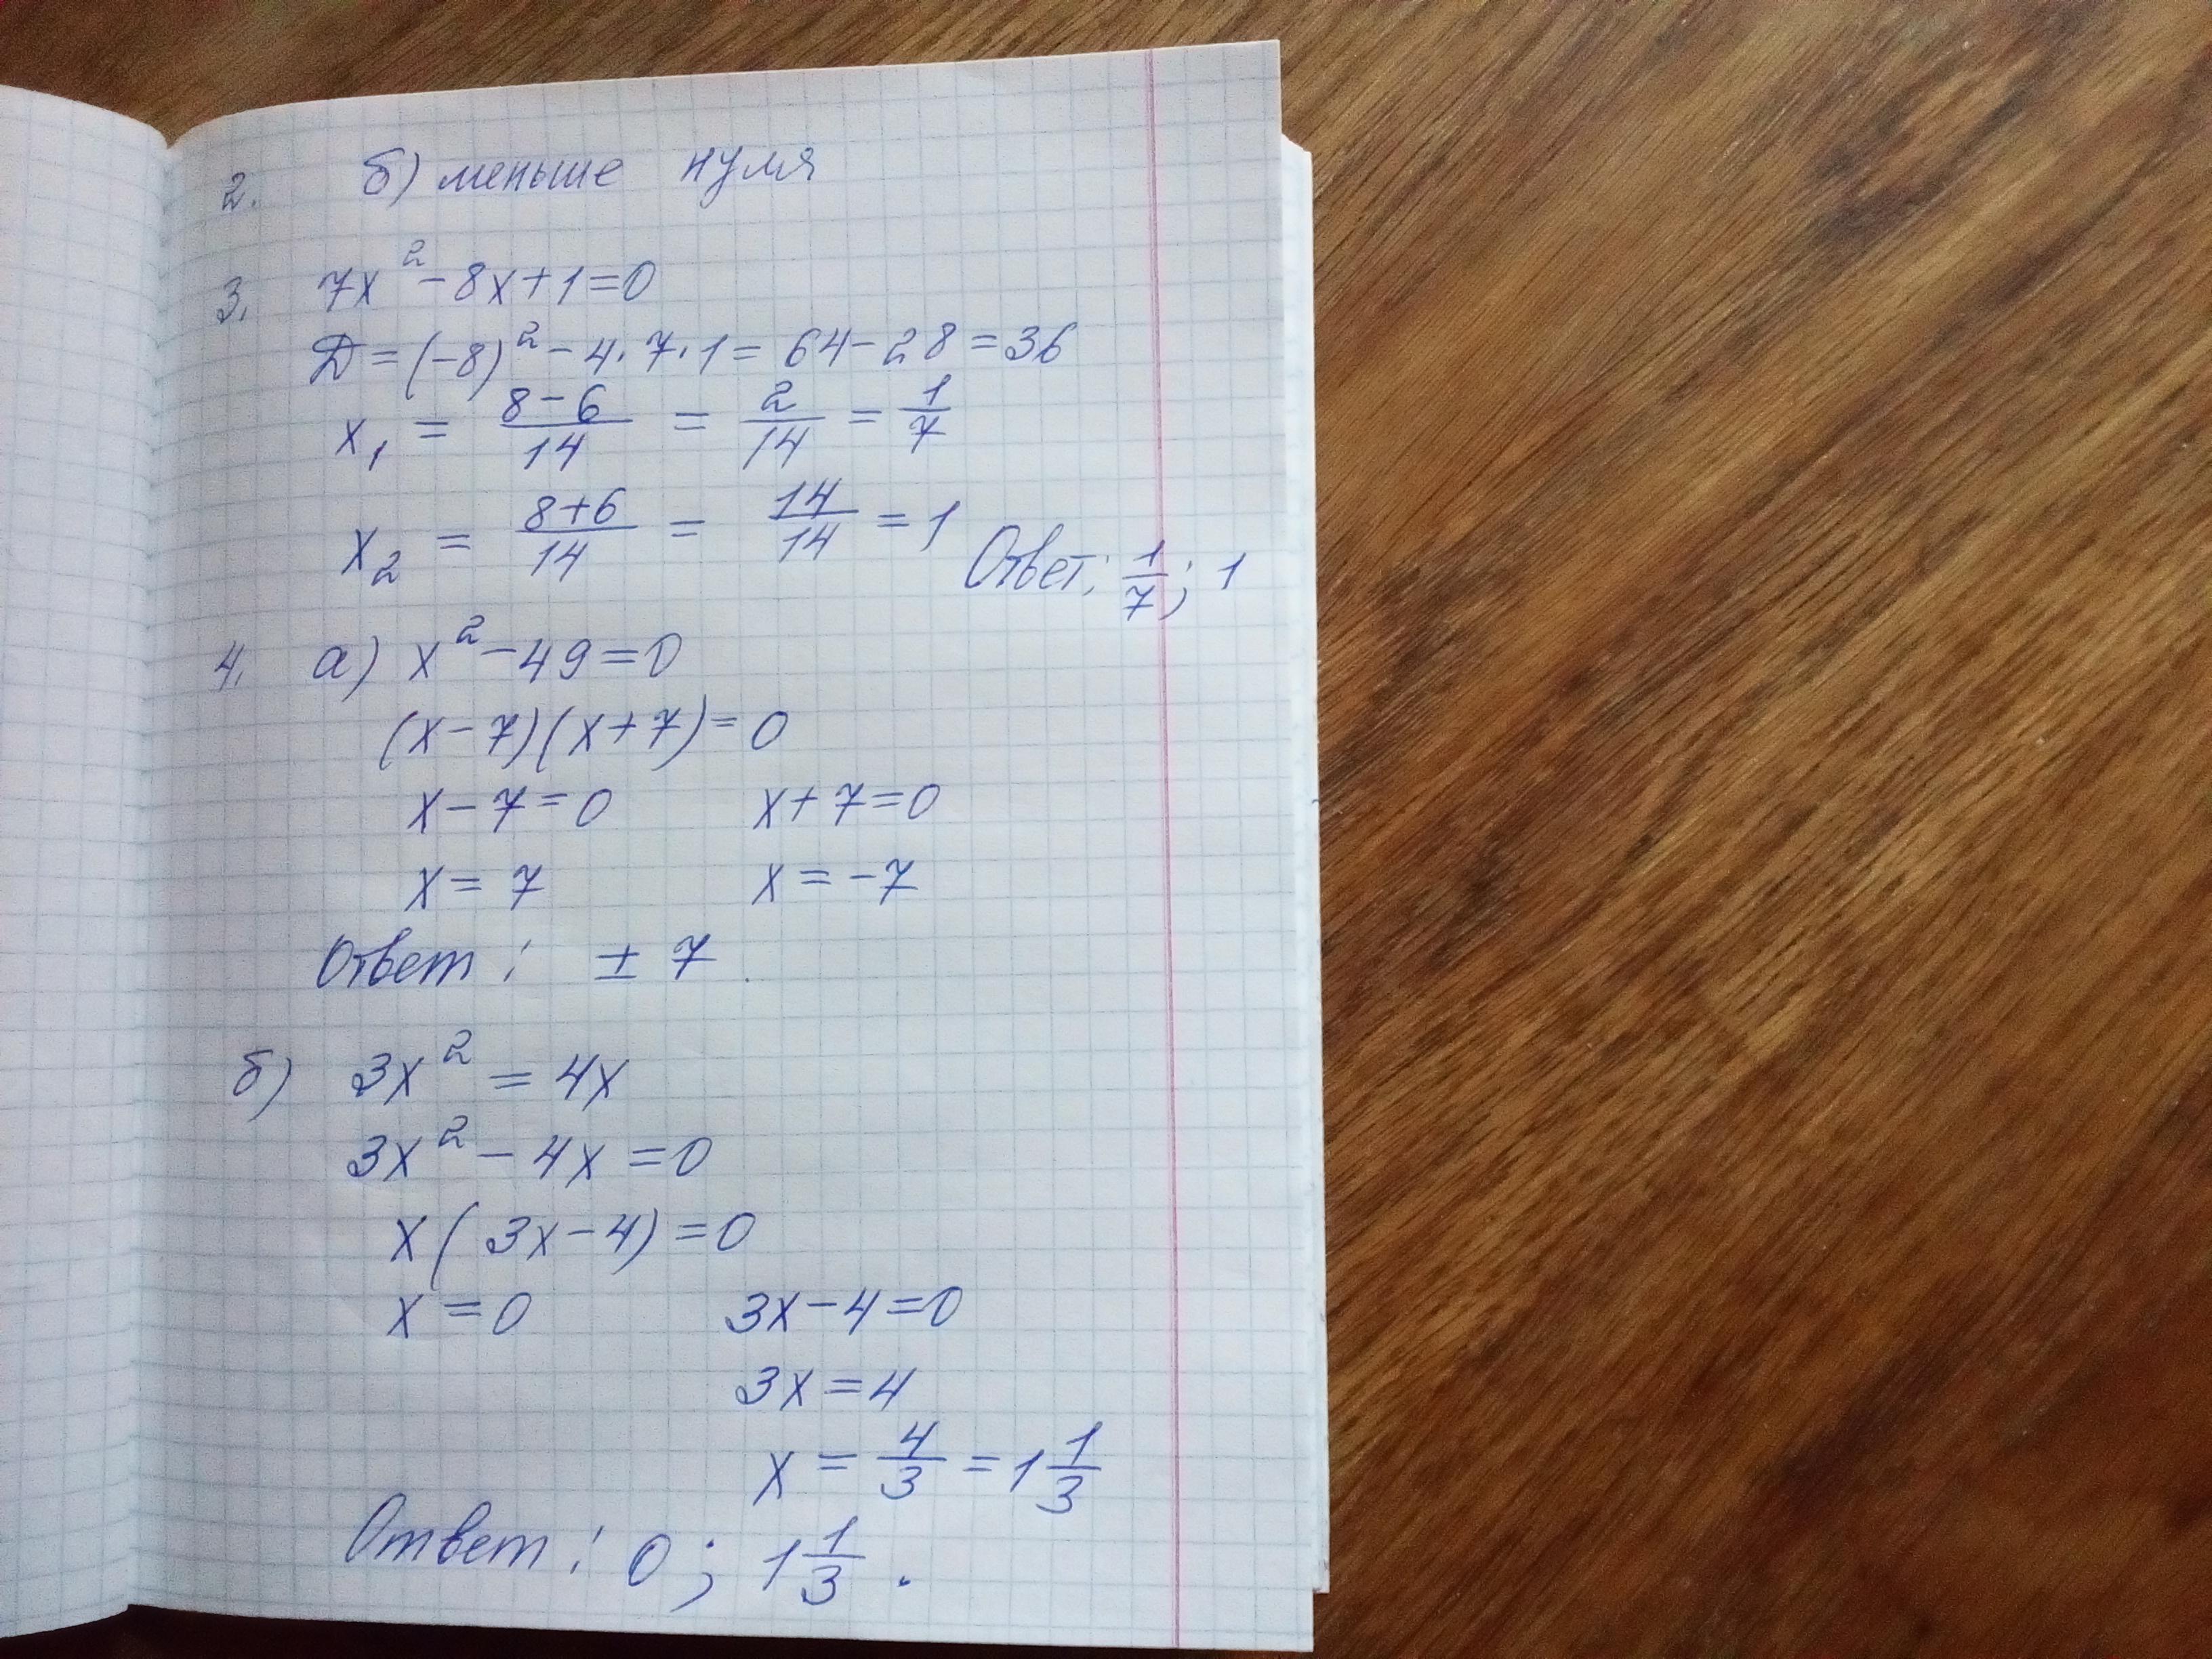 2. б) меньше нуля
3. 7x² - 8x + 1 = 0
Д = (-8)² - 4 · 7 · 1 = 64 - 28 = 36
x₁ = (8 - 6)/14 = 2/14 = 1/7
x₂ = (8 + 6)/14 = 14/14 = 1
Ответ: 1/7; 1
4. а) x² - 49 = 0
(x - 7)(x + 7) = 0
x - 7 = 0 x + 7 = 0
x = 7 x = -7
Ответ: ± 7.
б) 3x² = 4x
3x² - 4x = 0
x(3x - 4) = 0
x = 0 3x - 4 = 0
3x = 4
x = 4/3 = 1 1/3
Ответ: 0; 1 1/3.